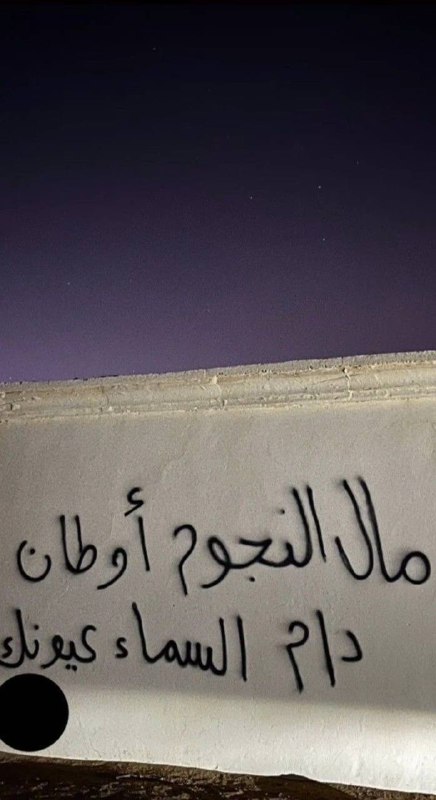 مال النجوم أوطان
دام السماء عيونك